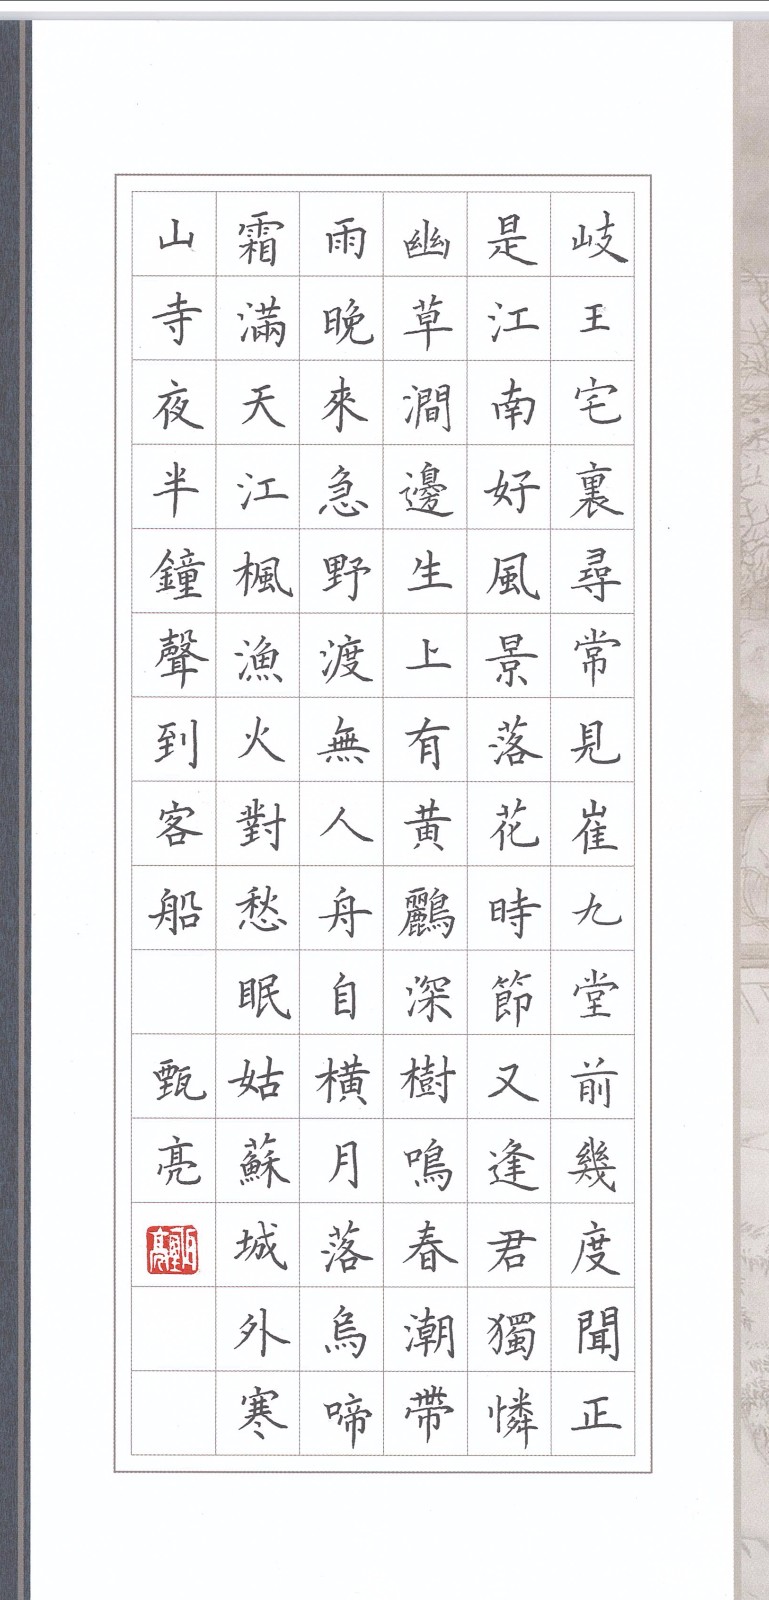 岐王宅裏尋常見崔九堂前幾度聞正
是江南好風景落花時節又逢君獨憐
幽草澗邊生上有黃鸝深樹鳴春潮帶
雨晚來急野渡無人舟自橫月落烏啼
霜滿天江楓漁火對愁眠姑蘇城外寒
山寺夜半鐘聲到客船 甄亮
甄亮